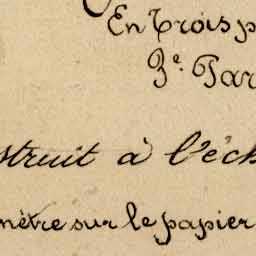 En Trois p
3e. Par
struit à l'éch
mètre sur le papier